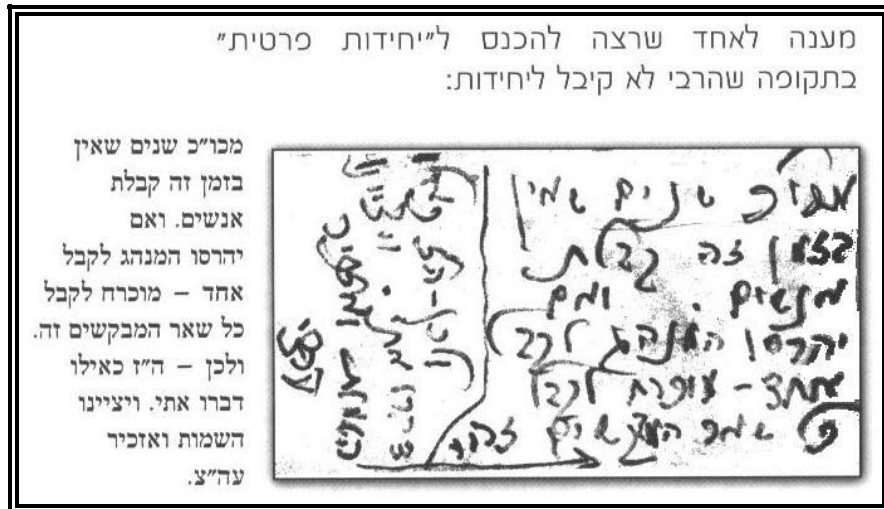 מענה לאחד שרצה להכנס ל״יחידות פרטית״
בתקופה שהרבי לא קיבל ליחידות:
מכו״כ שנים שאין
בזמן זה קבלת
אנשים. ואם
יהרסו המנהג לקבל
אחד – מוכרח לקבל
כל שאר המבקשים זה.
ולכן – ה״ז כאילו
דברו אתי. ויציינו
השמות ואזכיר
עה״צ.
מכו״כ שנים שאין
בזמן זה קבלת
אנשים. ואם
יהרסו המנהג לקבל
אחד – מוכרח לקבל
כל שאר המבקשים זה.